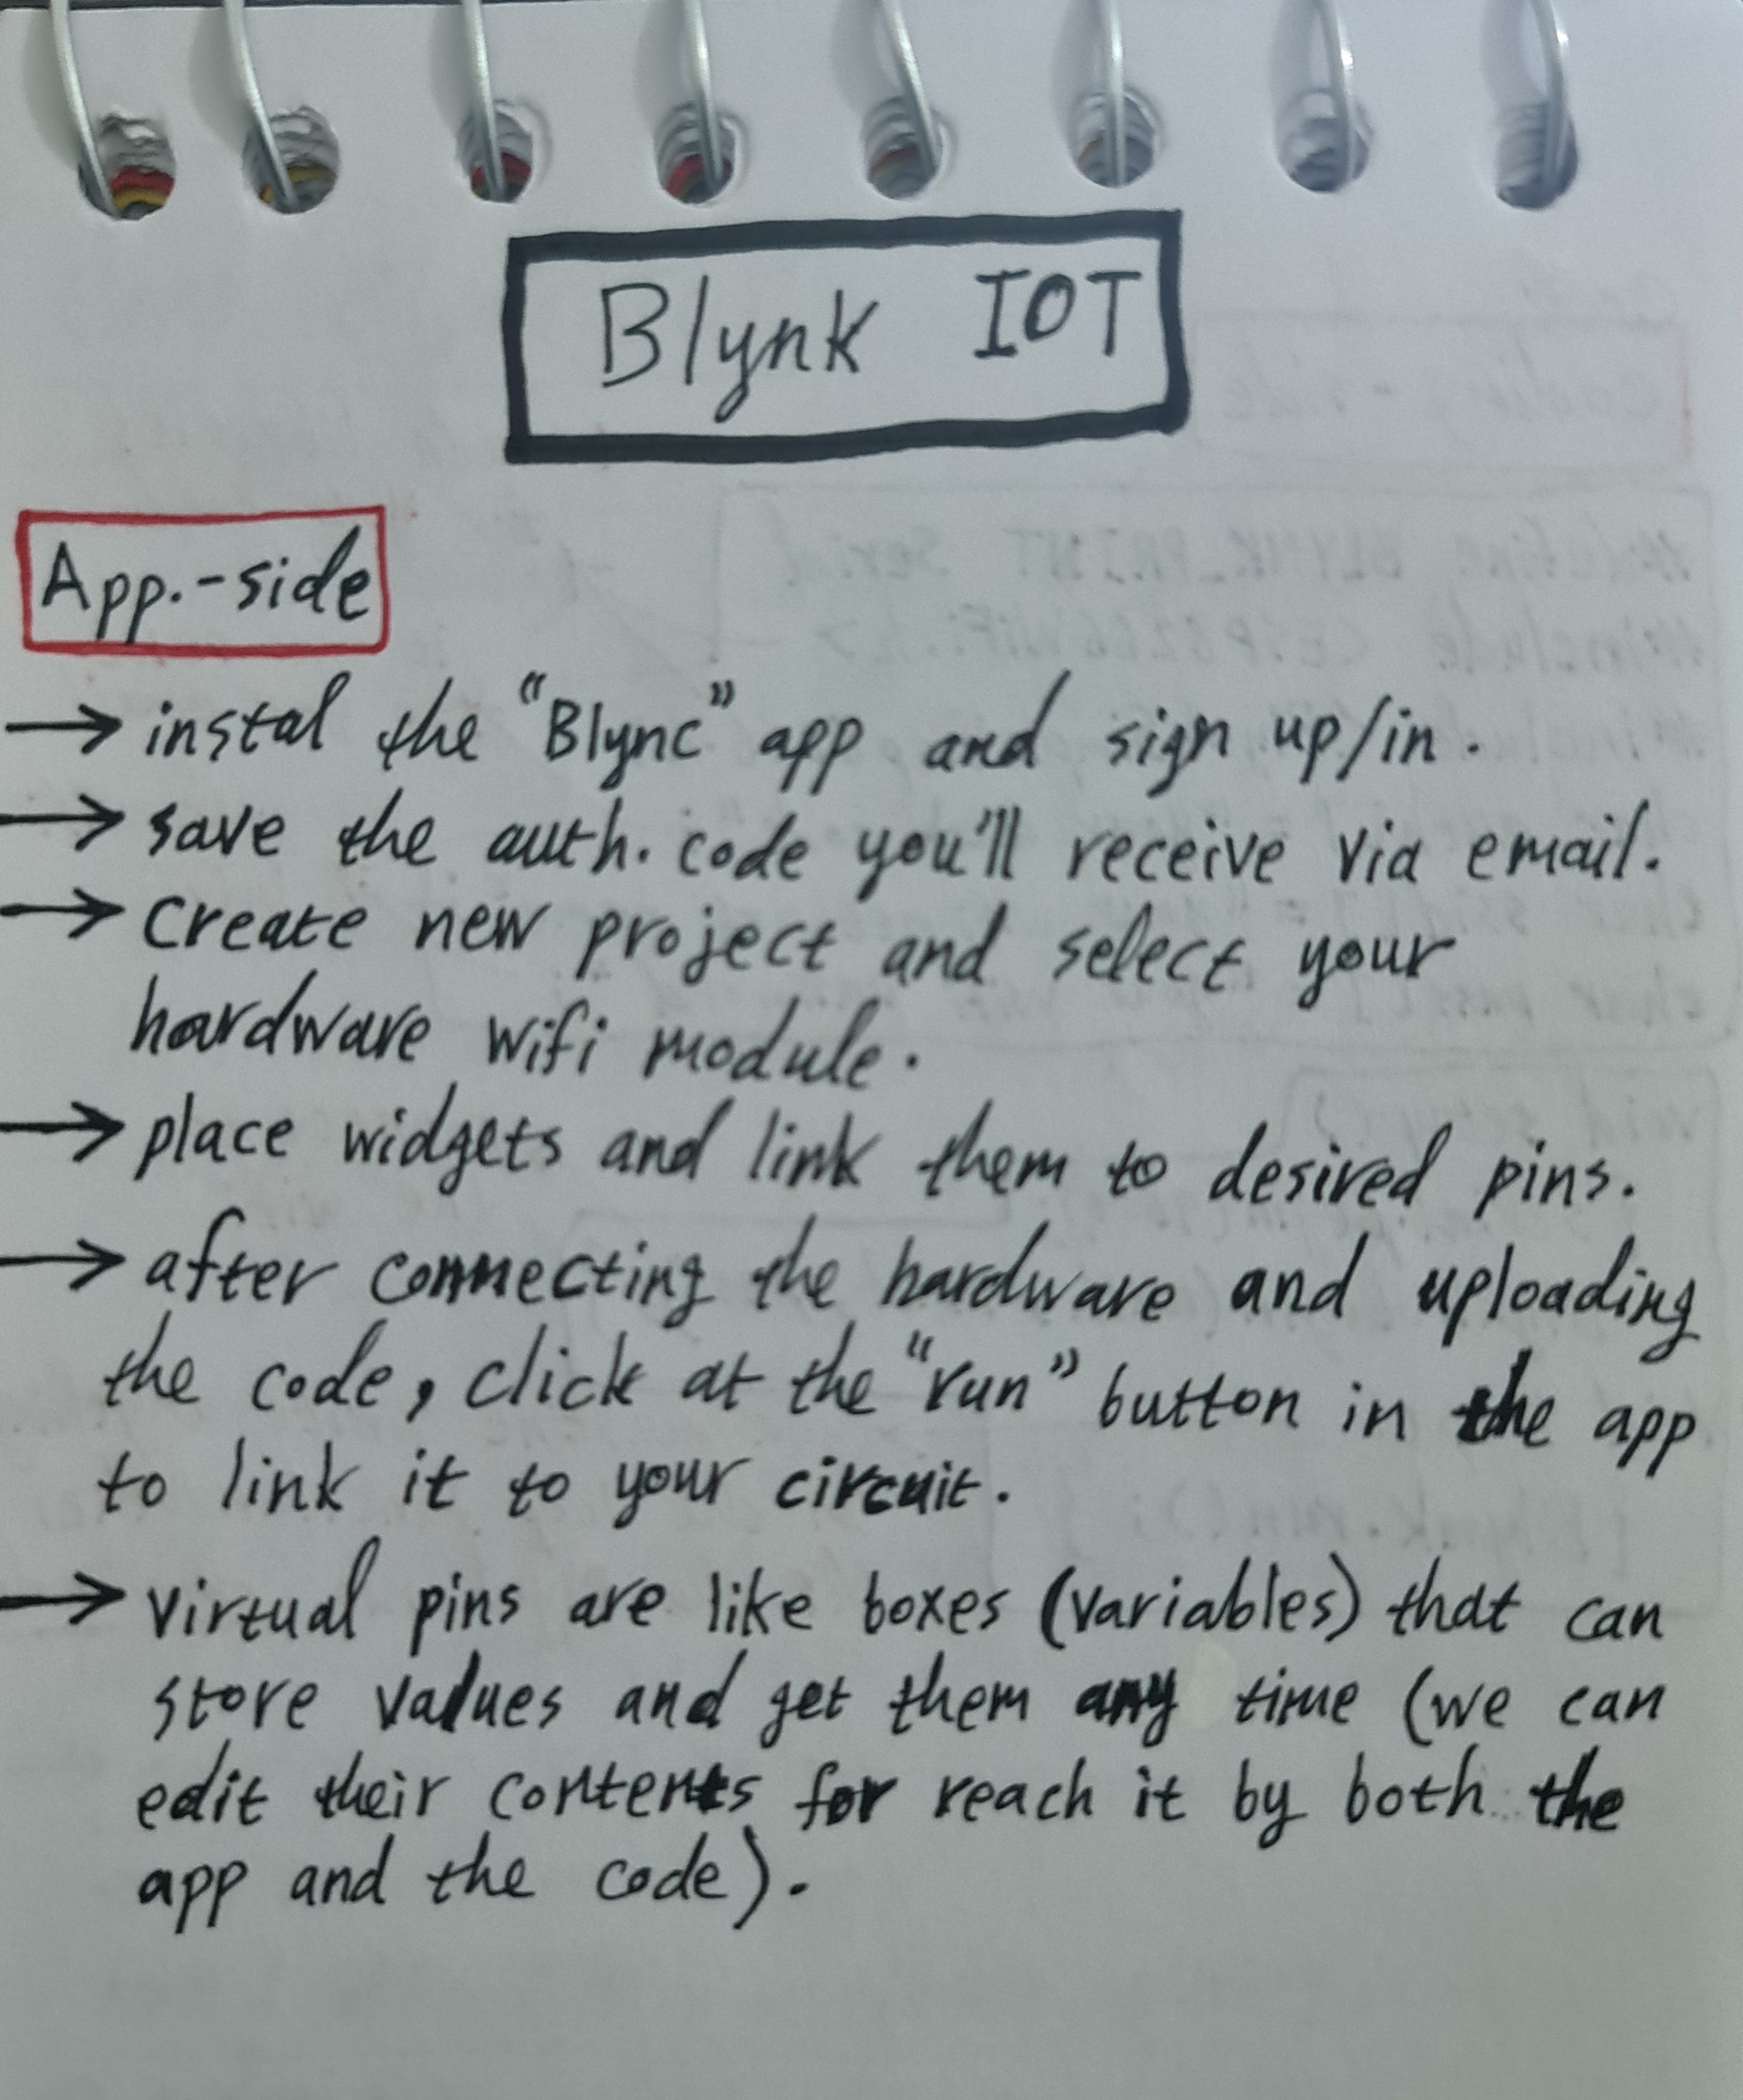 Blynk IOT
App.-side
→ instal the "Blync" app and sign up/in.
→ save the auth. code you'll receive via email.
→ create new project and select your
hardware wifi module.
→ place widgets and link them to desired pins.
→ after connecting the hardware and uploading
the code, click at the "run" button in the app
to link it to your circuit.
→ virtual pins are like boxes (variables) that can
store values and get them any time (we can
edit their contents for reach it by both the
app and the code).